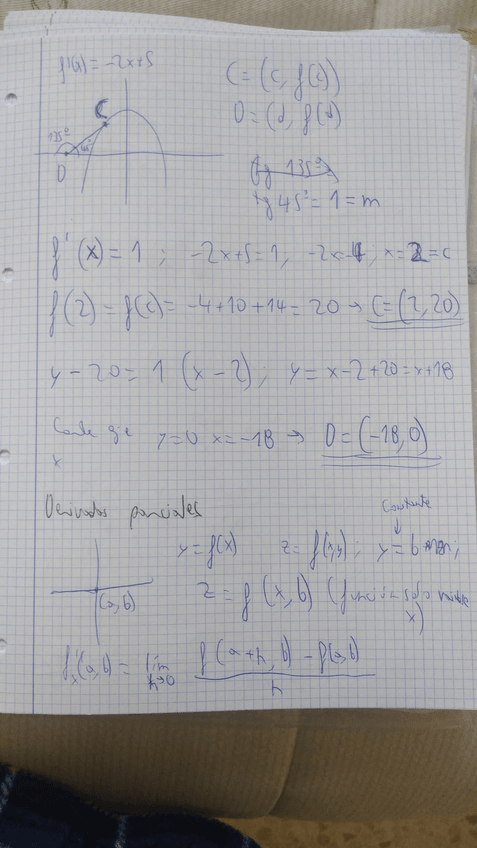 f'(x) = -2x+5
C = (c, f(c))
D = (d, f(d)
C
135º 45º
D
tg 135º
tg 45º = 1 = m
f'(x) = 1 ; -2x+5 = 1, -2x=-4, x = 2 = c
f(2) = f(c) = -4+10+14 = 20 → C = (2,20)
y - 20 = 1 (x - 2) ; y = x-2+20 = x+18
Corte eje
x
y=0 x = -18 → D = (-18,0)
Derivadas parciales
Constante
↓
y = f(x) z = f(x,y) ; y = b
(a,b)
z = f (x, b) (función solo variable
x)
f'x(a,b) = lim h→0 f(a+h, b) - f(a,b) / h